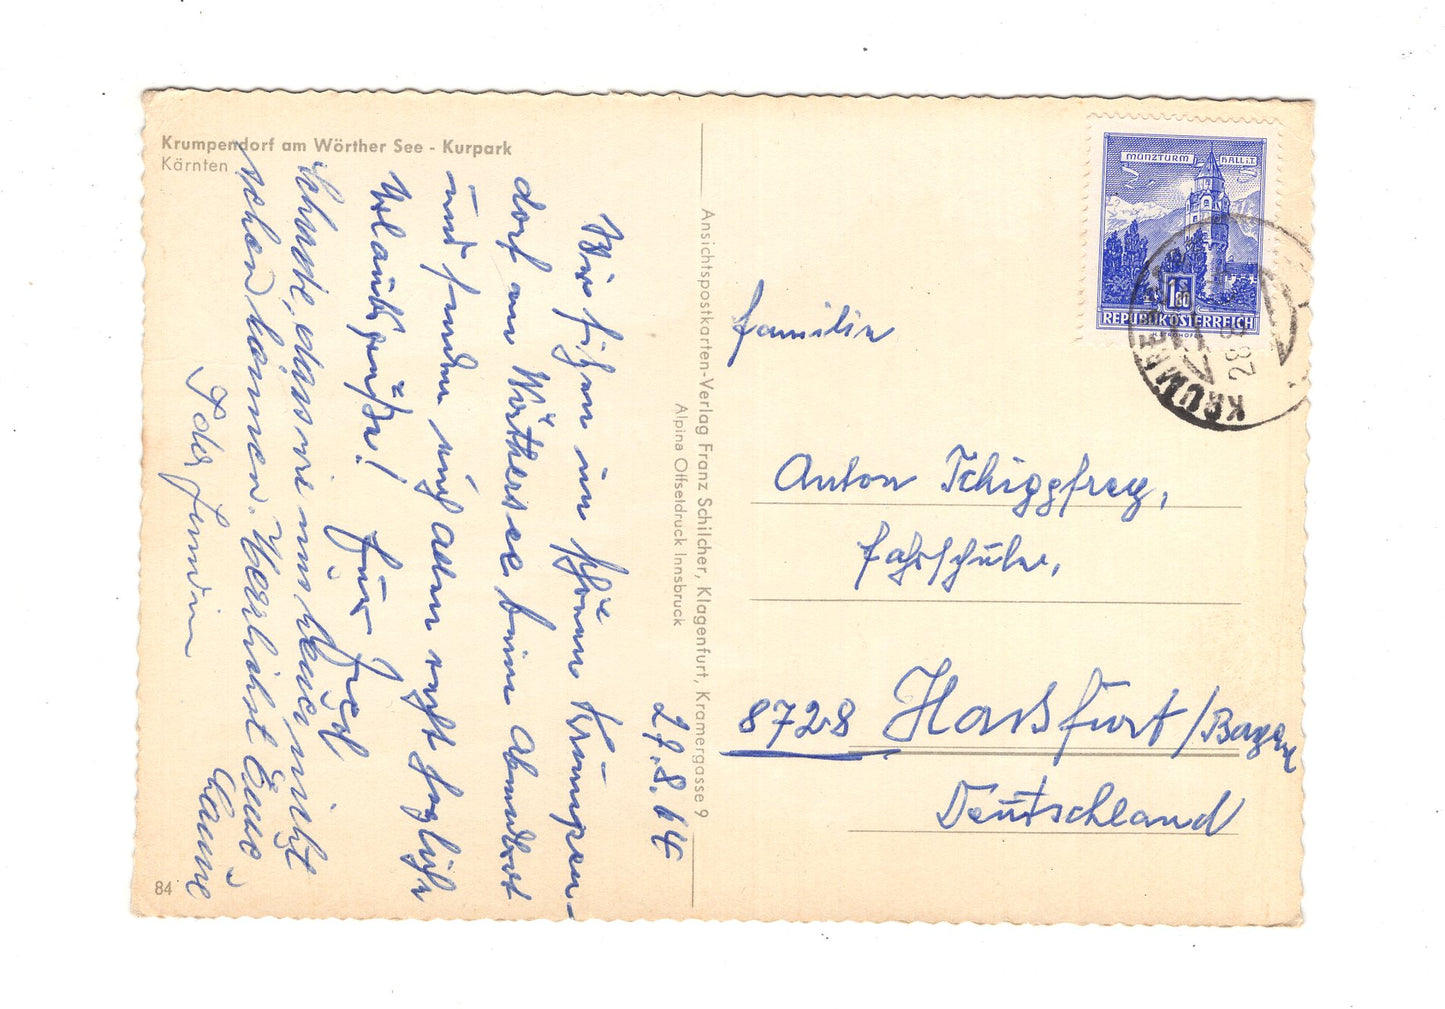 Krumpendorf am Wörther See - Kurpark
Kärnten
27.8.64
Wir sitzen im schönen Krumpen-
dorf am Wörthersee beim Abendbrot
und senden euch allen recht herzliche
Urlaubsgrüße! Eure Fredl
Schade, dass wir uns heuer nicht
sehen können. Herzlichst Eure
Hanne
84
Ansichtspostkarten-Verlag Franz Schilcher, Klagenfurt, Kramergasse 9
Alpina Offsetdruck Innsbruck
MÜNZTURM HALL i.T.
1.80
REPUBLIK ÖSTERREICH
KRUMPENDORF
28.8
Familie
Anton Tschiggfrey,
Fahrschule,
8728 Haßfurt/Bayern
Deutschland